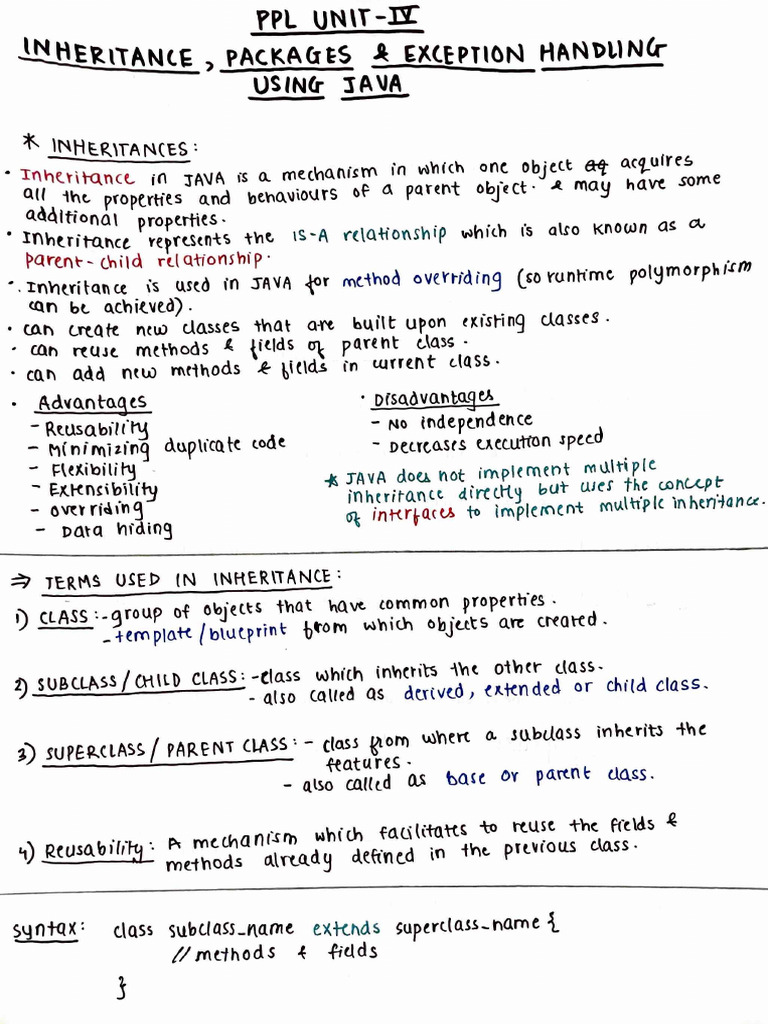 PPL UNIT-IV
INHERITANCE, PACKAGES & EXCEPTION HANDLING
USING JAVA
* INHERITANCES:
• Inheritance in JAVA is a mechanism in which one object aq acquires
all the properties and behaviours of a parent object. & may have some
additional properties.
• Inheritance represents the IS-A relationship which is also known as a
parent-child relationship.
• Inheritance is used in JAVA for method overriding (so runtime polymorphism
can be achieved).
• can create new classes that are built upon existing classes.
• can reuse methods & fields of parent class.
• can add new methods & fields in current class.
• Advantages
- Reusability
- Minimizing duplicate code
- Flexibility
- Extensibility
- overriding
- Data hiding
• Disadvantages
- No independence
- Decreases execution speed
* JAVA does not implement multiple
inheritance directly but uses the concept
of interfaces to implement multiple inheritance.
⇒ TERMS USED IN INHERITANCE:
1) CLASS:- group of objects that have common properties.
- template/blueprint from which objects are created.
2) SUBCLASS/CHILD CLASS: - class which inherits the other class.
- also called as derived, extended or child class.
3) SUPERCLASS/PARENT CLASS: - class from where a subclass inherits the
features.
- also called as base or parent class.
4) Reusability: A mechanism which facilitates to reuse the fields &
methods already defined in the previous class.
syntax: class subclass_name extends superclass_name {
// methods & fields
}